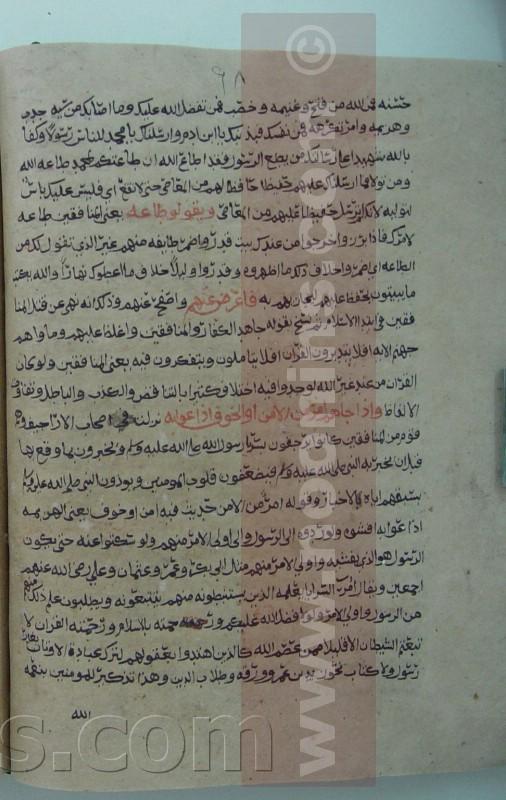 ٩٨
حسنة فمن الله من فتح وغنيمه وخصب فمن تفضل الله عليك وما اصابك من سيه جدب
وهزيمه وامر تكرهه فمن نفسك فبذنبك يا ابن ادم وارسلناك يا محمد للناس رسولا وكفا
بالله شهيدا علي رسالتك من يطع الرسول فقد اطاع الله ان طاعتكم لمحمد طاعه الله
ومن تولا فما ارسلناك عليهم حفيظا حافظا لهم من المعاصي حتي لا تقع اي فليس عليك باس
لتوليه لانك لم ترسل حفيظا عليهم من المعاصي ويقولو طاعه يعني المنافقين طاعه
لامرك فاذا برزو واخرجوا من عندك بيت قدر واضمر طايفه منهم غير الذي تقول لك من
الطاعه اي ضمر واخلاف ذلك ما اظهروه وقدروا ليلا خلاف ما اعطوك نهارا والله يكتب
ما يبيتون يحفظ عليهم ليجازيهم به فاعرض عنهم واصفح عنهم وذلك انه نهي عن قتل المنا
فقين في ابتد الاسلام ثم نسخ بقوله جاهد الكفار والمنافقين واغلظ عليهم وماواهم
جهنم الايه افلا يتدبرون القران افلا يتاملون ويتفكرون فيه يعني المنافقين ولو كان
القران من عند غير الله لوجدوا فيه اختلاف كثيرا بالتناقض والكذب والباطل وتفاوت
الالفاظ واذا جاهم امر من الامن او الخوف اذاعوا به نزلت في اصحاب الاراجيف وهم
قوم من المنافقين كانو يرجفون بسرايا رسول الله صلي الله عليه وسلم ويخبرون بما وقع بها
قبل ان يخبر به النبي صلي الله عليه وسلم فيضعفون قلوب المومنين ويوذون النبي صلي الله عليه وسلم
بسبقهم اياه بالاخبار وقوله امر من الامن حديث فيه امن او خوف يعني الهزيمه
اذاعوا به افشوه ولو ردوه الي الرسول والي اولي الامر منهم ولو سكتوا عنه حتي يكون
الرسول هو الذي يفشيه واولي الامر منهم مثل ابي بكر وعمر وعثمان وعلي رضي الله عنهم
اجمعين ويقال امر السرايا لعلمه الذين يستنبطونه منهم يتتبعونه ويطلبون علم ذلك منهم
من الرسول واولي الامر ولولا فضل الله عليكم ورحمته بالاسلام ورحمته القران لا
تبعتم الشيطان الا قليلا ممن عصم الله كالذين اهتدوا بعقولهم لترك عبادة الاوثان بغير
رسول ولا كتاب نحو زيد بن عمر وورقه وطلاب الدين وهذا تذكير للمومنين بنعمه
الله
© www.nbocoins.com
s.com